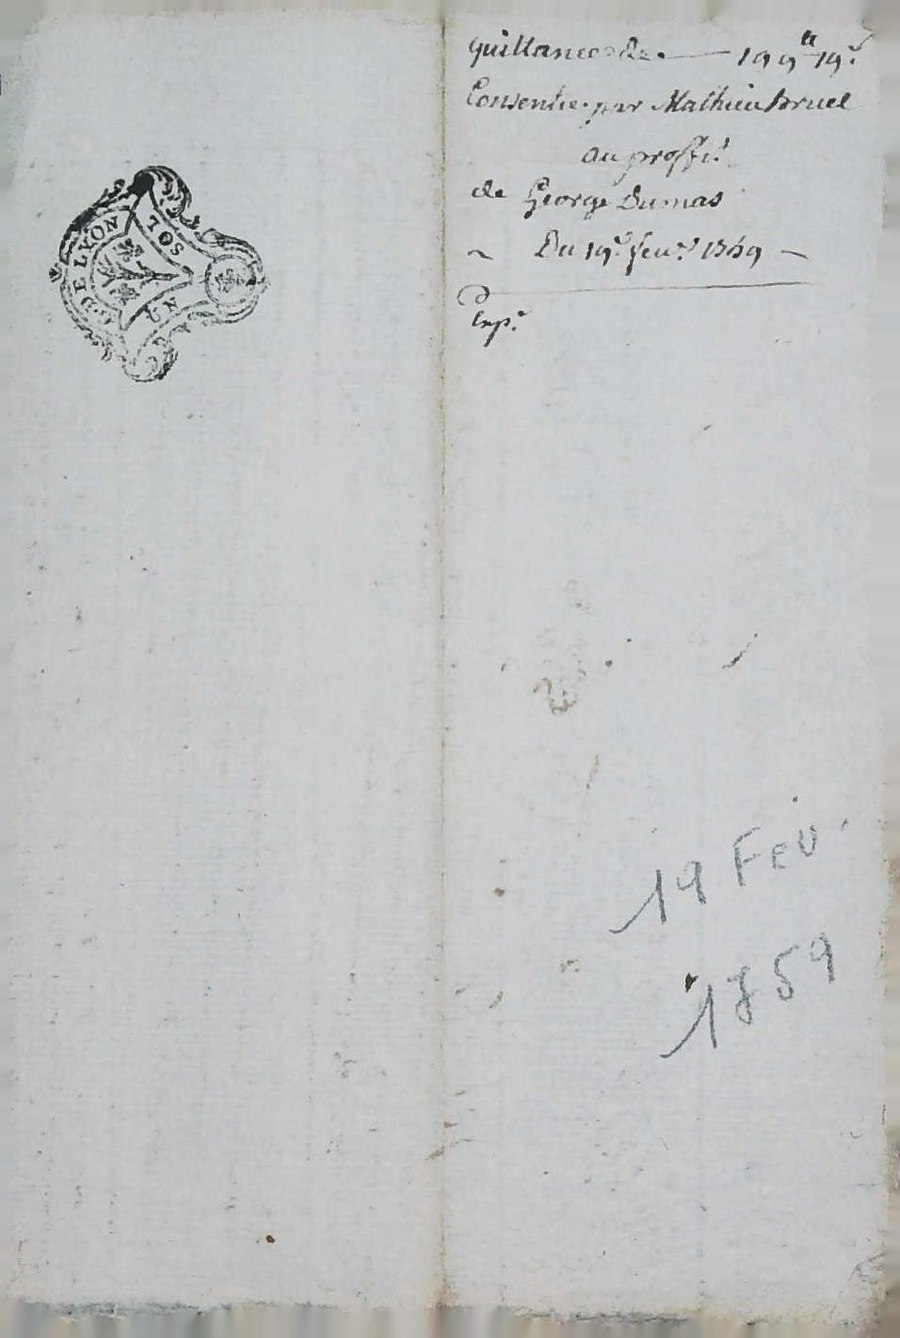 quittance de — 199ᵗᵗ 19ˢ
Consentie par Mathieu bruel
au proffit
de George Dumas
~ Du 19ᵉ fevʳ 1759 ~
Expᵉ
G. DE LYON
UN
SOL
19 Fev.
1759